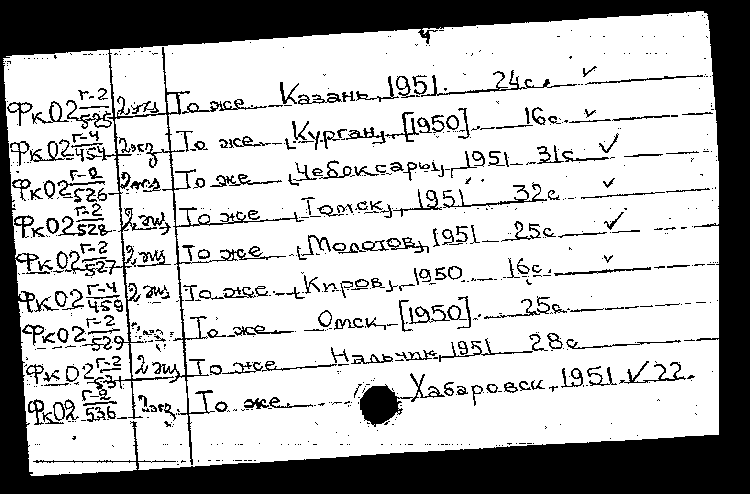 4
ФкО2 г-2/525 2 экз То же Казань, 1951. 24с. ✓
ФкО2 г-4/454 2экз. То же [Курган], [1950]. 16с. ✓
ФкО2 г-2/526 2экз То же [Чебоксары], 1951 31с ✓
ФкО2 г-2/528 2 экз То же [Томск], 1951 32с ✓
ФкО2 г-2/527 2 экз То же [Молотов], 1951 25с ✓
ФкО2 г-4/459 2 экз То же [Киров], 1950 16с. ✓
ФкО2 г-2/529 То же Омск, [1950]. 25с
ФкО2 г-2/531 2 экз То же Нальчик, 1951 28с
ФкО2 г-2/536 2экз. То же. Хабаровск, 1951. ✓ 22.